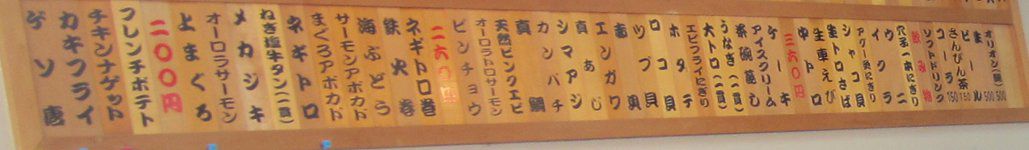 オリオン(瓶) 500
生ビール 500
さんぴん茶 150
コーラ 150
ソフトドリンク
飲み物
穴子一本にぎり
ウニ
イクラ
シャコ貝
生トロさば
生車えび
中トロ
三六〇円
ケーキ
アイスクリーム
茶碗蒸し
うなぎ(二貫)
大トロ(一貫)
エビフライにぎり
ホタテ
ロコ貝
ツブ貝
赤イカ
エンガワ
真あじ
シマアジ
カンパチ
真鯛
天然ピンクエビ
オーロラトロサーモン
ビンチョウ
二六〇円
ネギトロ巻
鉄火巻
海ぶどう
サーモンアボカド
まぐろアボカド
ネギトロ
ねぎ塩牛タン(二貫)
メカジキ
オーロラサーモン
上まぐろ
二〇〇円
フレンチポテト
チキンナゲット
カキフライ
ゲソ唐